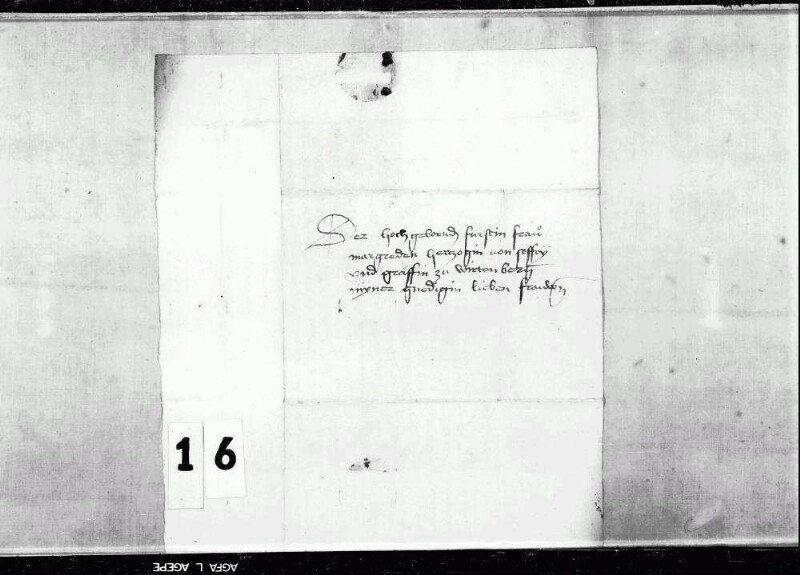 Der hochgebornen furstin frau
margreden hertzogin von soffoy
vnd greffin zu wirtenberg
myner gnedigin lieben frauwen
16
AGFA L AGEPE